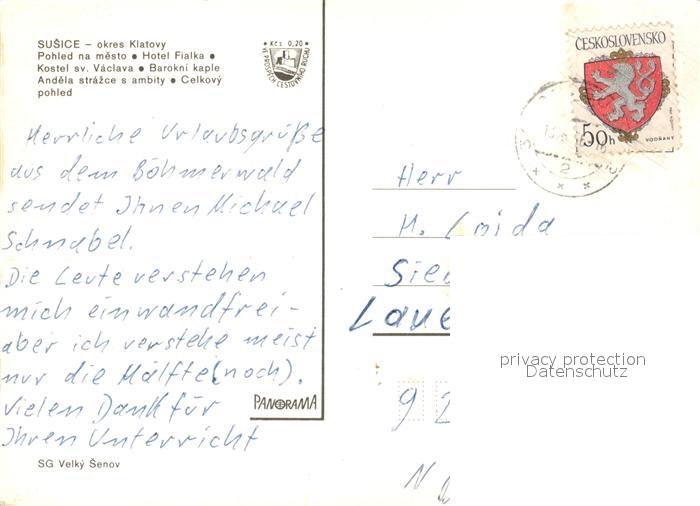 SUŠICE – okres Klatovy
Pohled na město ● Hotel Fialka ●
Kostel sv. Václava ● Barokní kaple
Anděla strážce s ambity ● Celkový
pohled
Kčs 0,20
VE PROSPĚCH CESTOVNÍHO RUCHU
ČESKOSLOVENSKO
50h
VODŇANY
2
Herrliche Urlaubsgrüße
aus dem Böhmerwald
sendet Ihnen Michael
Schnabel.
Die Leute verstehen
mich einwandfrei –
aber ich verstehe meist
nur die Hälfte (noch).
Vielen Dank für
Ihren Unterricht
PANORAMA
SG Velký Šenov
Herr
H. Loida
Sie
Laue
privacy protection
Datenschutz
92
N